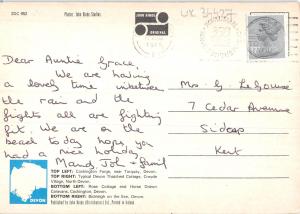 2DC 482
Photos: John Hinde Studios
JOHN HINDE
ORIGINAL
UK 34427
Dear Auntie Grace,
We are having
a lovely time inbetween
the rain and the
fights all are fighting
fit. We are on the
beach to day hope, you
had a nice holiday
Mand, Joh & family
Mrs G
7 Cedar Avenue
Sidcup
Kent
DEVON
TOP LEFT: Cockington Forge, near Torquay, Devon.
TOP RIGHT: Typical Devon Thatched Cottage, Croyde
Village, North Devon.
BOTTOM LEFT: Rose Cottage and Horse Drawn
Carriage, Cockington, Devon.
BOTTOM RIGHT: Burleigh on the Sea, Devon.
Published by John Hinde (Distributors) Ltd. Printed in Ireland